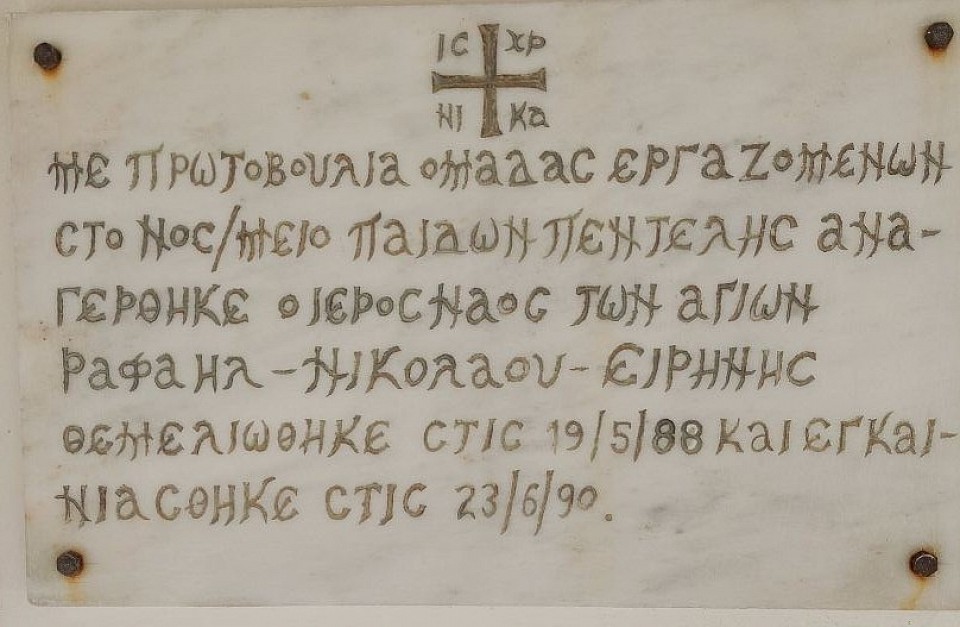 ΙC ΧΡ
ΝΙ ΚΑ
ΜΕ ΠΡΩΤΟΒΟΥΛΙΑ ΟΜΑΔΑC ΕΡΓΑΖΟΜΕΝΩΝ
CΤΟ ΝΟC/ΜΕΙΟ ΠΑΙΔΩΝ ΠΕΝΤΕΛΗC ΑΝΑ-
ΓΕΡΘΗΚΕ Ο ΙΕΡΟC ΝΑΟC ΤΩΝ ΑΓΙΩΝ
ΡΑΦΑΗΛ - ΝΙΚΟΛΑΟΥ - ΕΙΡΗΝΗC
ΘΕΜΕΛΙΩΘΗΚΕ CΤΙC 19/5/88 ΚΑΙ ΕΓΚΑΙ-
ΝΙΑCΘΗΚΕ CΤΙC 23/6/90.